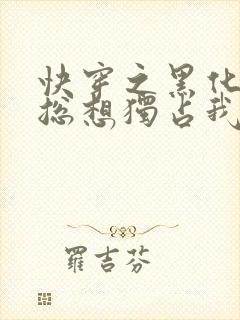 快穿之黑化
总想獨占我
羅吉芬